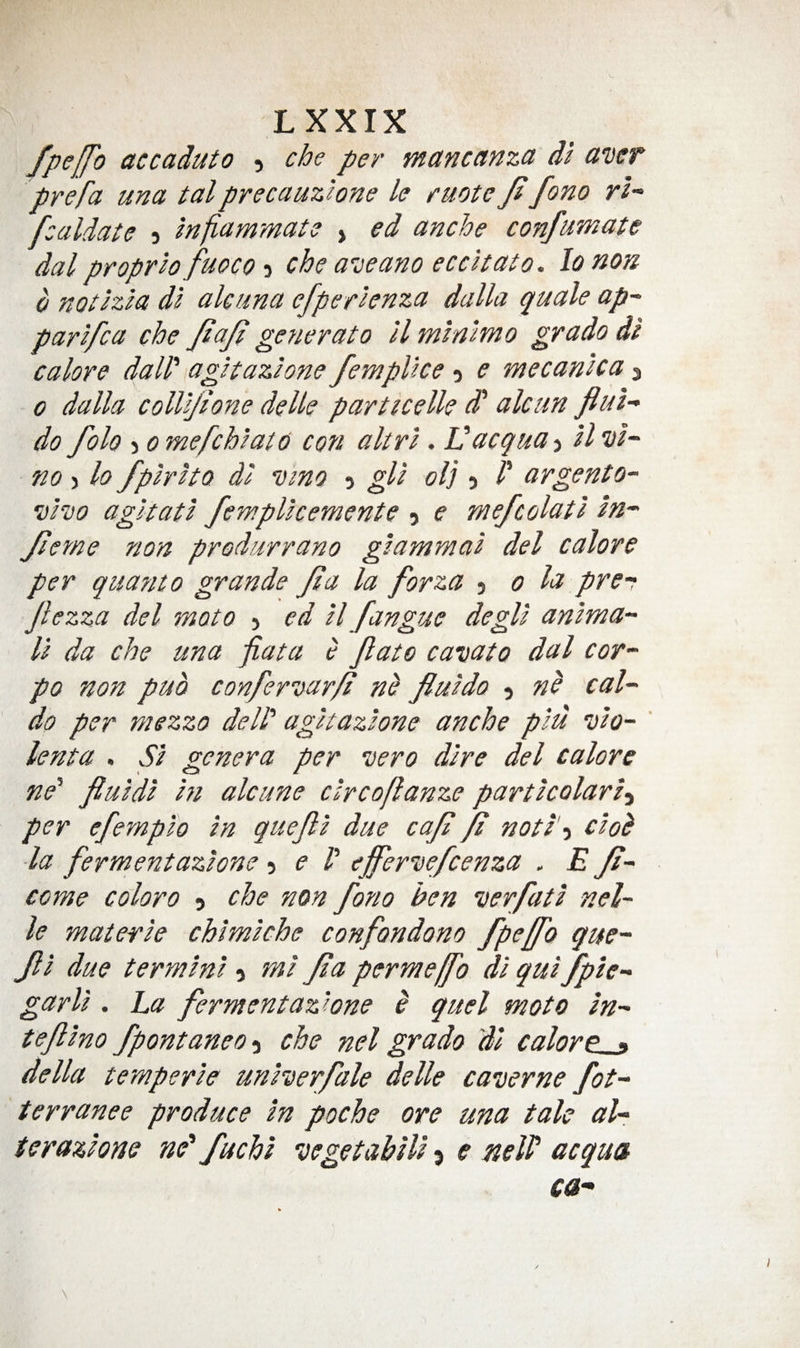 LXXIX
ſpeſſo accaduto, che per mancanza di aver
preſa una tal precauzione le ruote ſi ſono ri-
ſcaldate, infiammate, ed anche conſumate
dal proprio fuoco, che aveano eccitato. Io non
ò notizia di alcuna eſperienza dalla quale ap-
pariſca che ſiaſi generato il minimo grado di
calore dall' agitazione ſemplice, e mecanica,
o dalla colliſione delle particelle d' alcun flui-
do ſolo, o meſchiato con altri. L'acqua, il vi-
no, lo ſpirito di vino, gli olj, l' argento-
vivo agitati ſemplicemente, e meſcolati in-
ſieme non produrrano giammai del calore
per quanto grande ſia la forza, o la pre-
ſtezza del moto, ed il ſangue degli anima-
li da che una fiata è ſtato cavato dal cor-
po non può conſervarſi nè fluido, nè cal-
do per mezzo dell' agitazione anche più vio-
lenta. Si genera per vero dire del calore
ne' fluidi in alcune circoſtanze particolari,
per eſempio in queſti due caſi ſi noti, cioè
la fermentazione, e l' efferveſcenza. E ſi-
come coloro, che non ſono ben verſati nel-
le materie chimiche confondono ſpeſſo que-
ſti due termini, mi ſia permeſſo di qui ſpie-
garli. La fermentazione è quel moto in-
teſtino ſpontaneo, che nel grado di calore,
della temperie univerſale delle caverne ſot-
terranee produce in poche ore una tale al-
terazione ne' ſuchi vegetabili, e nell' acqua
ca-